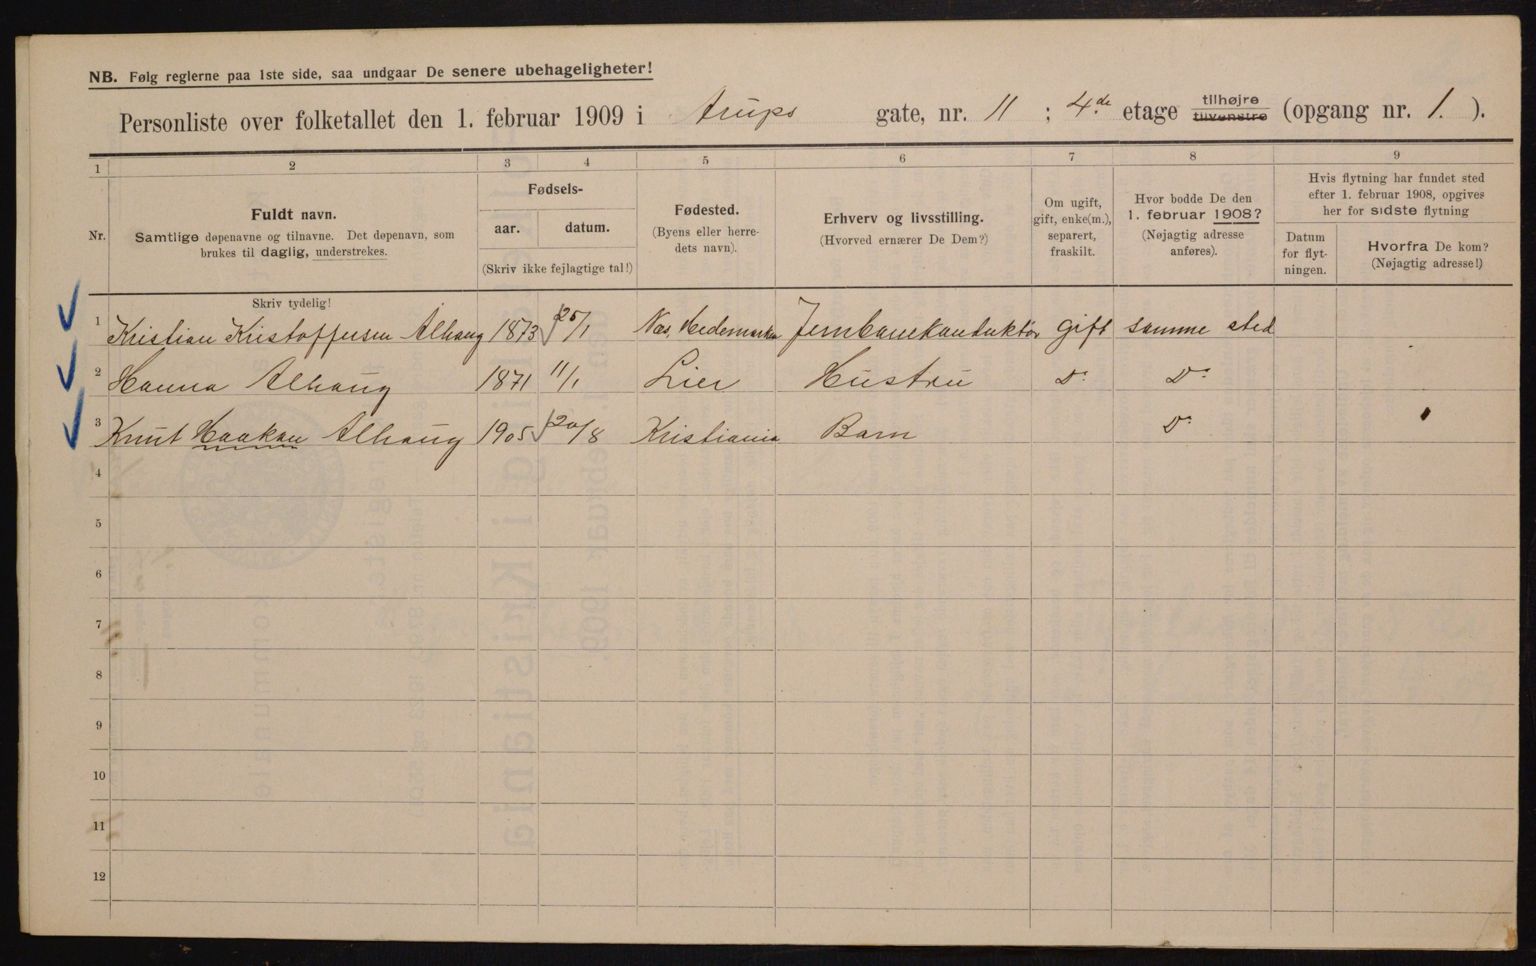 NB. Følg reglerne paa 1ste side, saa undgaar De senere ubehageligheter!
Personliste over folketallet den 1. februar 1909 i Arups gate, nr. 11 ; 4de etage tilhøjre tilvenstre (opgang nr. 1. ).
1 2 3 4 5 6 7 8 9
Nr. Fuldt navn. Samtlige døpenavne og tilnavne. Det døpenavn, som brukes til daglig, understrekes.
Fødsels- aar. datum. (Skriv ikke fejlagtige tal!)
Fødested. (Byens eller herredets navn).
Erhverv og livsstilling. (Hvorved ernærer De Dem?)
Om ugift, gift, enke(m.), separert, fraskilt.
Hvor bodde De den 1. februar 1908? (Nøjagtig adresse anføres).
Hvis flytning har fundet sted efter 1. februar 1908, opgives her for sidste flytning
Datum for flytningen.
Hvorfra De kom? (Nøjagtig adresse!)
Skriv tydelig!
1 Kristian Kristoffersen Alhaug 1873 25/1 Næs, Hedemarken Jernbanekonduktør gift samme sted
2 Hanna Alhaug 1871 11/1 Lier Hustru Do Do
3 Knut Haakon Alhaug 1905 20/8 Kristiania Barn Do
4
5
6
7
8
9
10
11
12